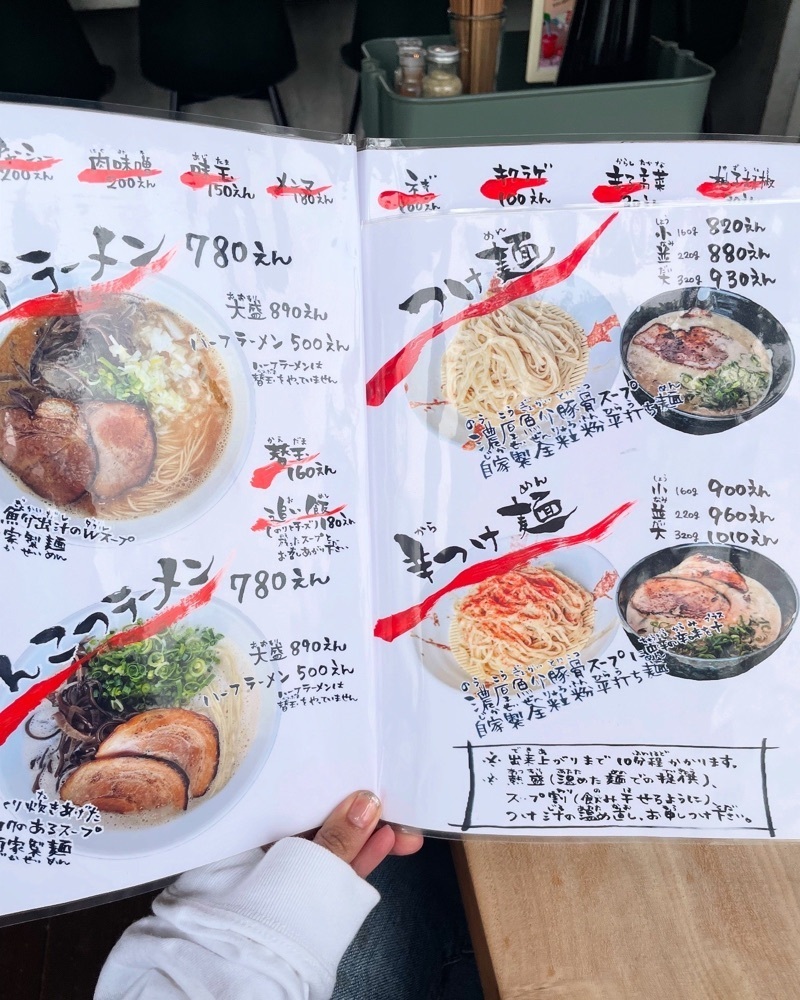 チャーシュー
200えん
肉味噌
200えん
味玉
150えん
メンマ
180えん
ラーメン 780えん
大盛 890えん
ハーフラーメン 500えん
ハーフラーメンは
替玉をやっていません
替玉
160えん
追い飯
180えん
残ったスープと
お召しあがり下さい
魚介出汁のWスープ
家製麺
んこつラーメン 780えん
大盛 890えん
ハーフラーメン 500えん
ハーフラーメンは
替玉をやっていません
くり炊きあげた
クのあるスープ
家製麺
ネギ
100えん
キクラゲ
100えん
辛子高菜
つけ麺
小 160g 820えん
並 220g 880えん
大 320g 930えん
濃厚魚介豚骨スープ
自家製全粒粉平打ち麺
辛つけ麺
小 160g 900えん
並 220g 960えん
大 320g 1010えん
濃厚魚介豚骨スープ
自家製全粒粉平打ち麺
※ 出来上がりまで10分程かかります。
※ 熱盛(温めた麺での提供)、
スープ割(飲み干せるように)、
つけ汁の温め直し、お申しつけ下さい。